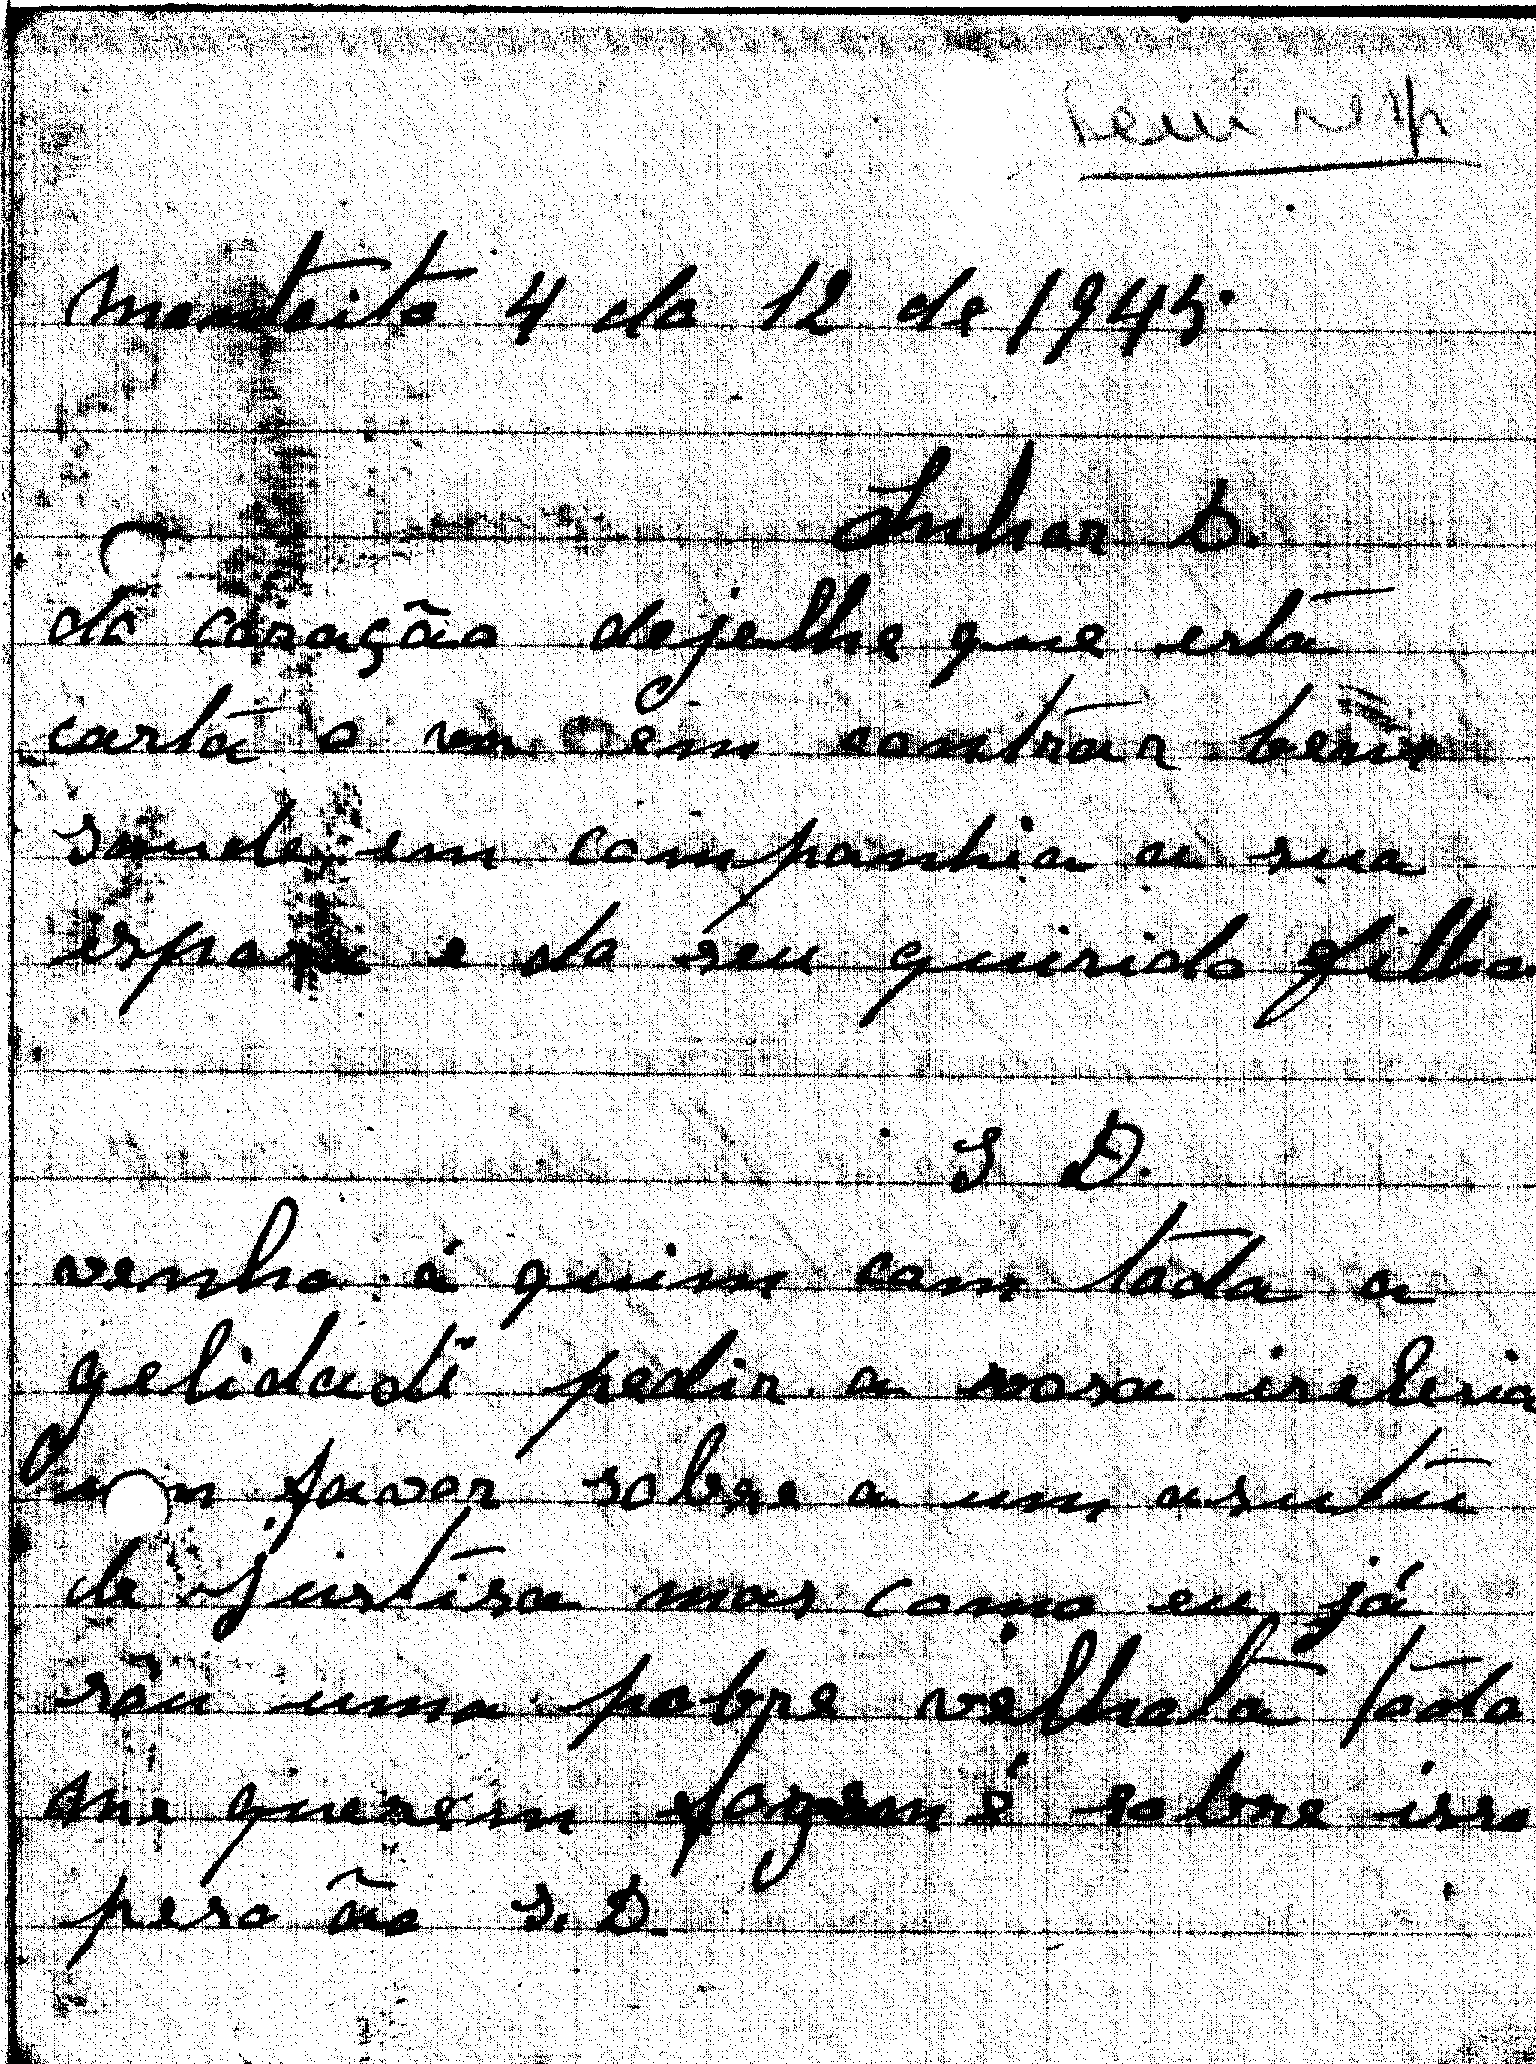 Monteito 4 da 12 de 1945.
Snhor D.
do coração dejelhe que esta
carta o vm em contrar bem
saude em companhia a sua
espoza e do seu quirido filho
S D.
venho á quim com toda a
gelidade pedir a vosa iselesia
um favor sobre a um asutu
de Justisa mas como eu já
sou uma pobre velhota todo
me querem fazem é sobre isso
peso ão S. D.